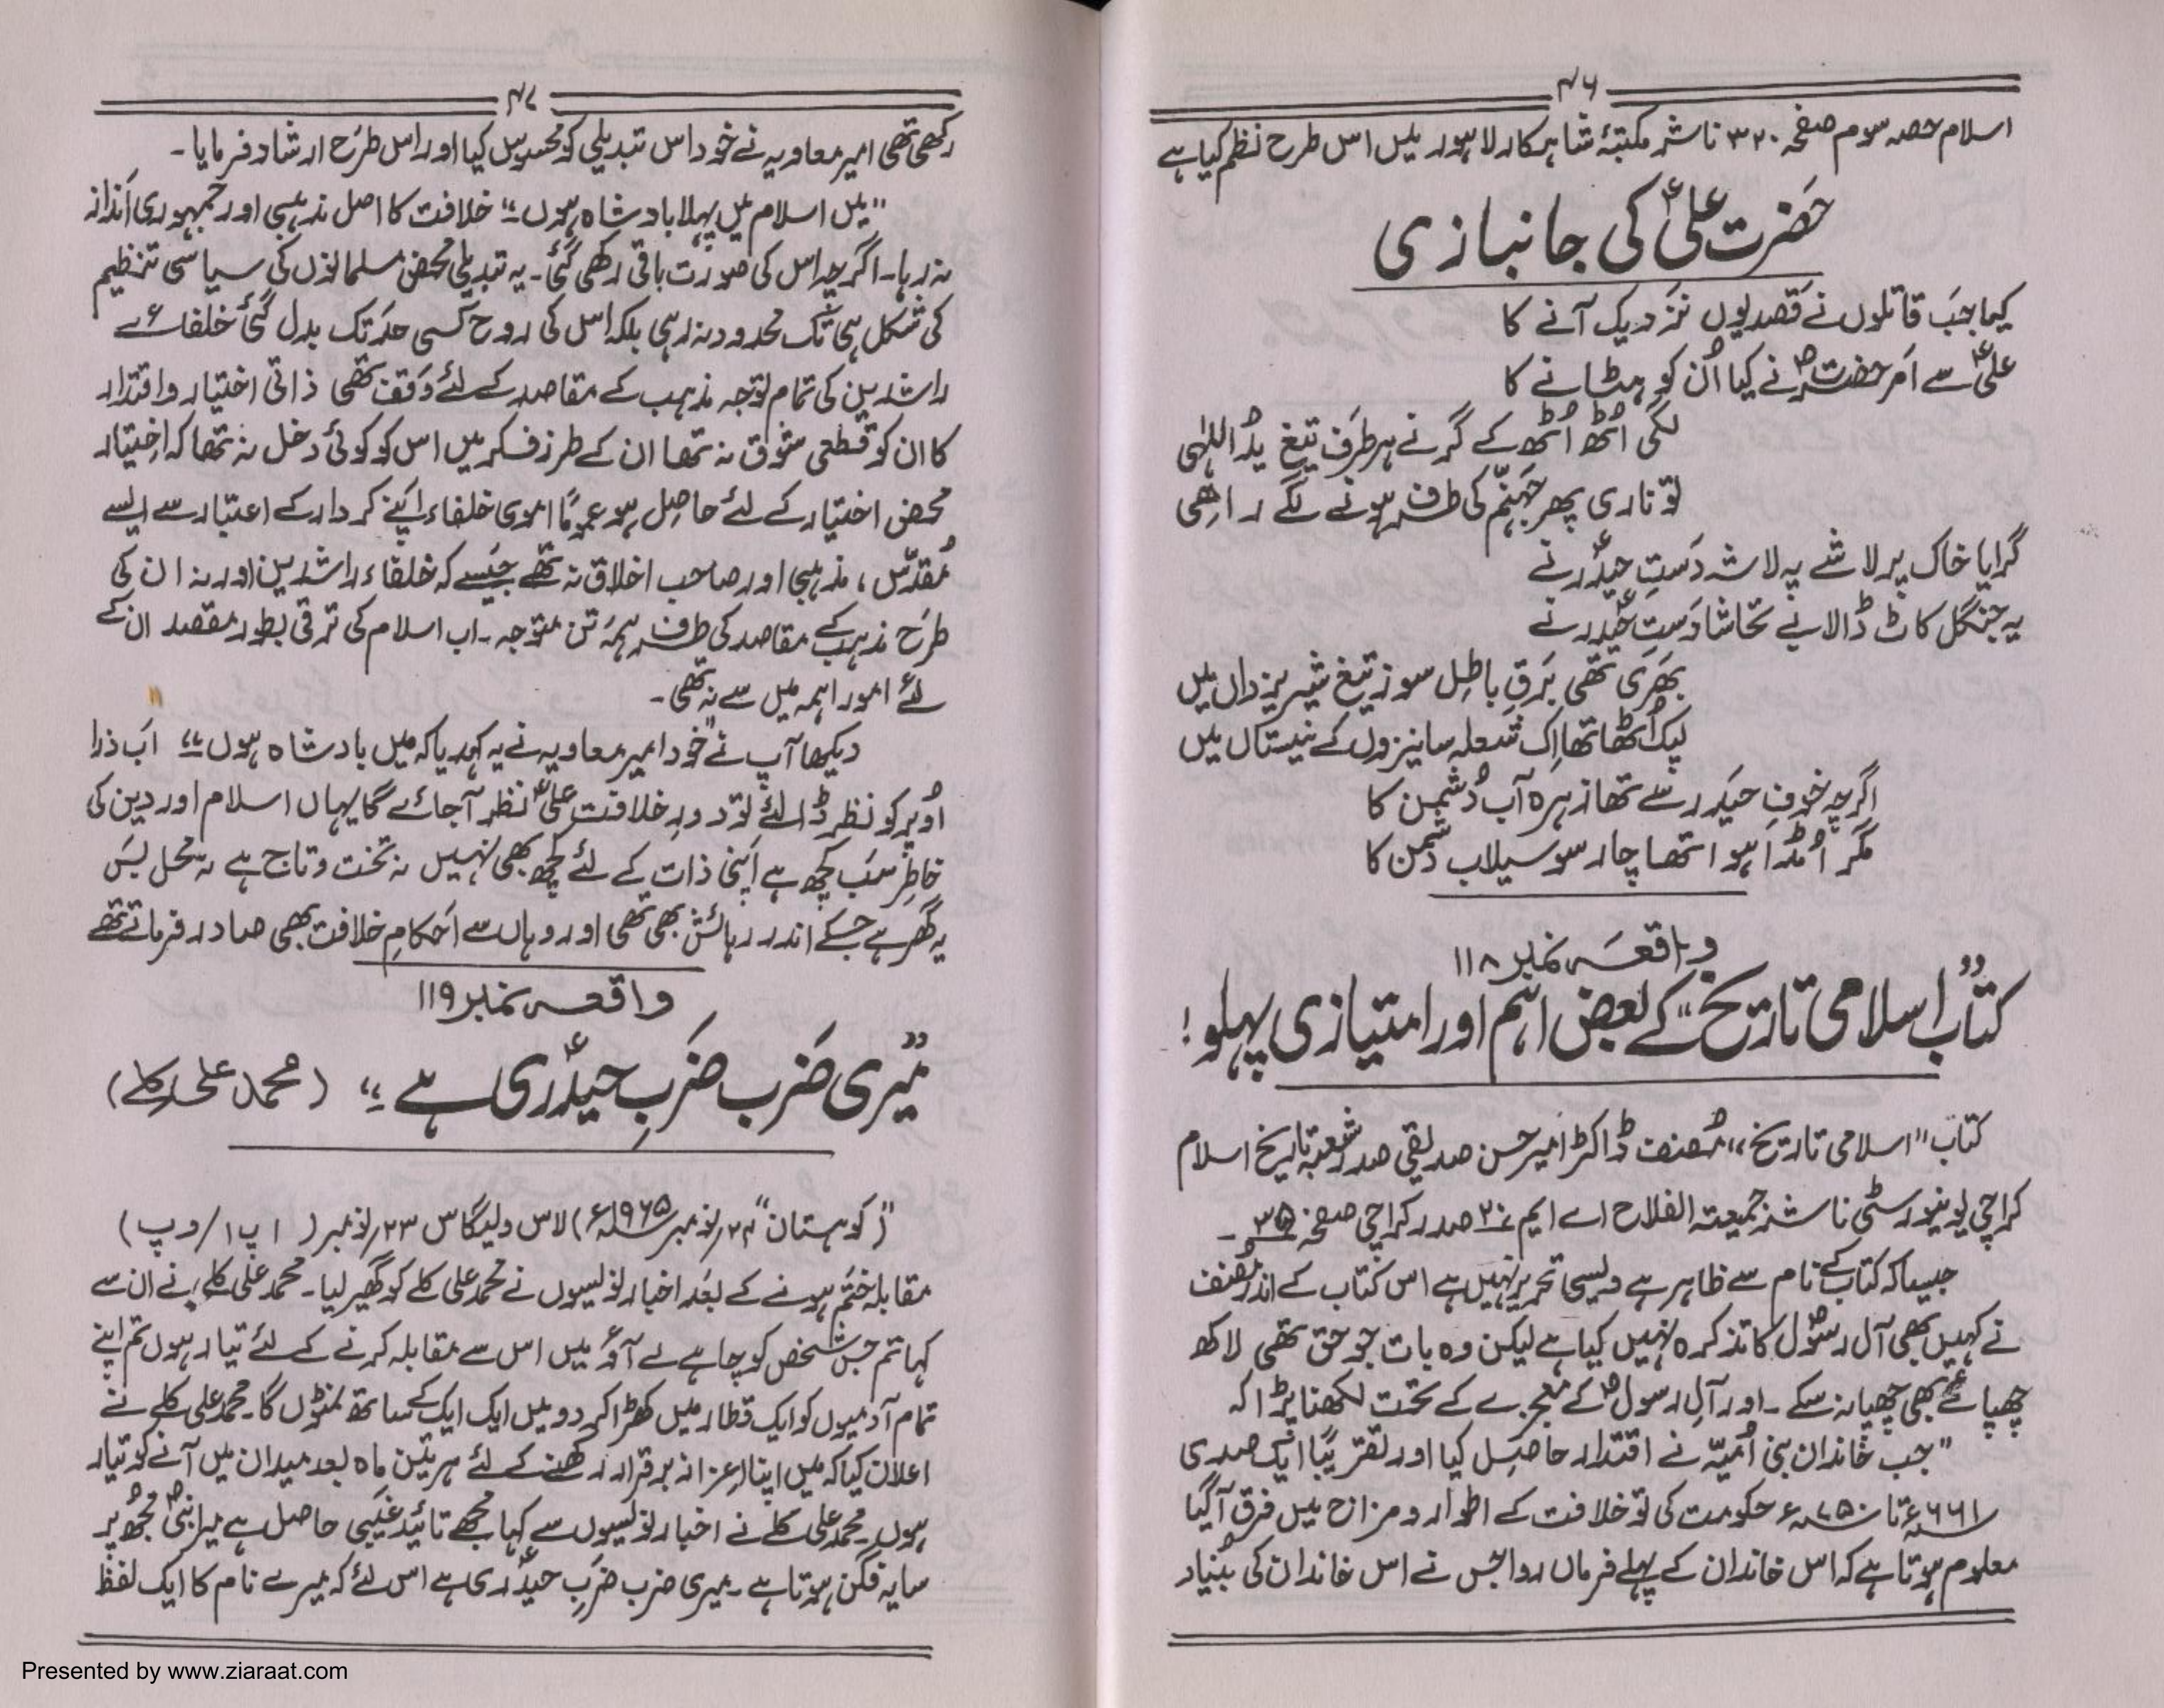 ۴۶
اسلام حصہ سوم صفحہ ۳۲۰ ناشر مکتبۂ شاہکار لاہور میں اس طرح نظم کیا ہے
حضرت علیؑ کی جانبازی
کیا جب قاتلوں نے قصد یوں نزدیک آنے کا
علیؑ سے امر حضرتؐ نے کیا اُن کو ہٹانے کا
لگی اُٹھ اُٹھ کے گرنے ہر طرف تیغ یدُ اللہٰی
تو ناری پھر جہنّم کی طرف ہونے لگے راہی
گرایا خاک پر لاشے پہ لاشہ دَستِ حیدؑر نے
یہ جنگل کاٹ ڈالا بے تحاشا دَستِ حیدؑر نے
بھَری تھی بَرقِ باطِل سوز تیغِ شیرِ یزداں میں
لپک اُٹھا تھا اِک شعلہ سا نیزوں کے نیستاں میں
اگرچہ خوفِ حیدَر سے تھا زہرہ آب دُشمن کا
مگر اُمڈا ہوا تھا چار سو سیلاب دشمن کا
واقعہ نمبر ۱۱۸
کتاب "اسلامی تاریخ" کے بعض اہم اور امتیازی پہلو!
کتاب "اسلامی تاریخ" مُصنف ڈاکٹر امیر حسن صدیقی صدر شعبہ تاریخ اسلام
کراچی یونیورسٹی ناشر جمیعتہ الفلاح اے ایم ۲۰ صدر کراچی صفحہ ۳۵۔
جیسا کہ کتاب کے نام سے ظاہر ہے ویسی تحریر نہیں ہے اس کتاب کے اندر مُصنف
نے کہیں بھی آل رسولؐ کا تذکرہ نہیں کیا ہے لیکن وہ بات جو حق تھی لاکھ
چھپائے بھی چھپا نہ سکے۔ اور آلِ رسولؐ کے معجزے کے تحت لکھنا پڑا کہ
"جب خاندان بنی اُمیّہ نے اقتدار حاصِل کیا اور تقریبًا ایک صدی
۶۶۱ء تا ۷۵۰ء حکومت کی تو خلافت کے اطوار و مزاج میں فرق آگیا
معلوم ہوتا ہے کہ اس خاندان کے پہلے فرماں روا جس نے اس خاندان کی بُنیاد
۴۷
رکھی تھی امیر معاویہ نے خود اس تبدیلی کو محسوس کیا اور اس طرَح ارشاد فرمایا۔
"میں اسلام میں پہلا بادشاہ ہوں" خلافت کا اصل مذہبی اور جمہوری انداز
نہ رہا۔ اگرچہ اس کی صورت باقی رکھی گئی۔ یہ تبدیلی محض مسلمانوں کی سیاسی تنظیم
کی شکل ہی تک محدود نہ رہی بلکہ اس کی روح کسی حد تک بدل گئی خلفائے
راشدین کی تمام توجہ مذہب کے مقاصد کے لئے وَقف تھی ذاتی اختیار و اقتدار
کا ان کو قطعی شوق نہ تھا ان کے طرز فکر میں اس کو کوئی دخل نہ تھا کہ اختیار
محض اختیار کے لئے حاصِل ہو عمومًا اموی خلفاء اپنے کردار کے اعتبار سے ایسے
مُقدّس، مذہبی اور صاحب اخلاق نہ تھے جیسے کہ خلفاء راشدین اور نہ ان کی
طرَح مذہب کے مقاصد کی طرف ہمَہ تن متوجہ۔ اب اسلام کی ترقی بطور مقصد ان کے
لئے امور اہمہ میں سے نہ تھی۔ "
دیکھا آپ نے خود امیر معاویہ نے یہ کہدیا کہ میں بادشاہ ہوں" اَب ذرا
اُوپر کو نظر ڈالئے تو دور خلافت علیؑ نظر آجائے گا یہاں اسلام اور دین کی
خاطر سَب کچھ ہے اپنی ذات کے لئے کچھ بھی نہیں نہ تخت و تاج ہے نہ محل بَس
یہ گھر ہے جسکے اندر رہائش بھی تھی اور وہاں سے اَحکامِ خلافت بھی صادر فرماتے تھے
واقعہ نمبر ۱۱۹
"میری ضَرب ضَربِ حیدؑری ہے" (محمد علی کلے)
"(کوہستان" ۲۴ نومبر ۱۹۶۵ء) لاس ویگاس ۲۳ نومبر (ا پ ا/ و پ)
مقابلہ ختم ہونے کے بعد اخبار نویسوں نے محمد علی کلے کو گھیر لیا۔ محمد علی کلے نے ان سے
کہا تم جس شخص کو چاہے لے آؤ میں اس سے مقابلہ کرنے کے لئے تیار ہوں تم اپنے
تمام آدمیوں کو ایک قطار میں کھڑا کر دو میں ایک ایک کے ساتھ نمٹوں گا۔ محمد علی کلے نے
اعلان کیا کہ میں اپنا اعزاز برقرار رکھنے کے لئے ہر تین ماہ بعد میدان میں آنے کو تیار
ہوں۔ محمد علی کلے نے اخبار نویسوں سے کہا مجھے تائید غیبی حاصل ہے میرا نبیؐ مجھ پر
سایہ فگن ہوتا ہے۔ میری ضرب ضَربِ حیدؑری ہے اس لئے کہ میرے نام کا ایک لفظ
Presented by www.ziaraat.com